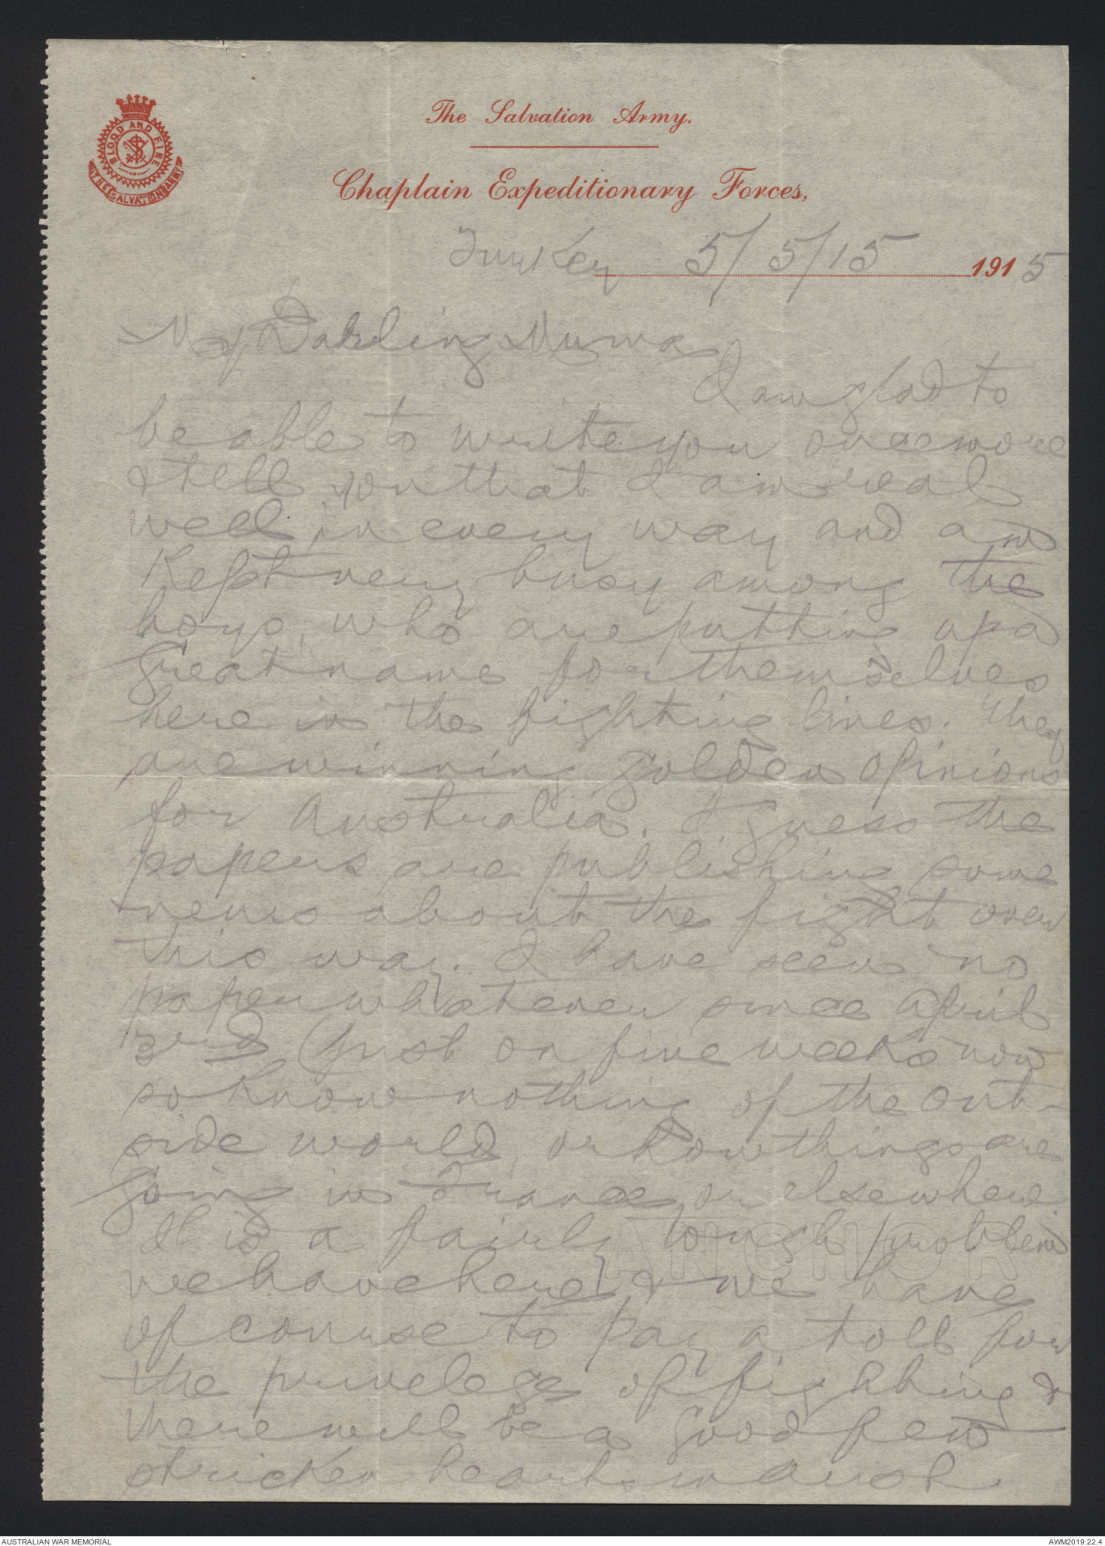 The Salvation Army.
Chaplain Expeditionary Forces,
BLOOD AND FIRE
THE SALVATION ARMY
Turkey 5/5/15 1915
My Darling
I am glad to
be able to write you once more
& tell you that I am real
well in every way and am
Kept very busy among the
boys, who are putting up a
great name for themselves
here in the fighting lines. They
are winning golden opinions
for Australia. I guess the
papers are publishing some
news about the fight over
this way. I have seen no
paper whatever since April
3rd (just on five weeks now
so know nothing of the out-
side world, or how things are
going in France or elsewhere
It is a fairly tough problem
we have here & we have
of course to pay a toll for
the privelege of fighting &
there will be a good few
stricken hearts in
ANCHOR
AUSTRALIAN WAR MEMORIAL
AWM2019.22.4